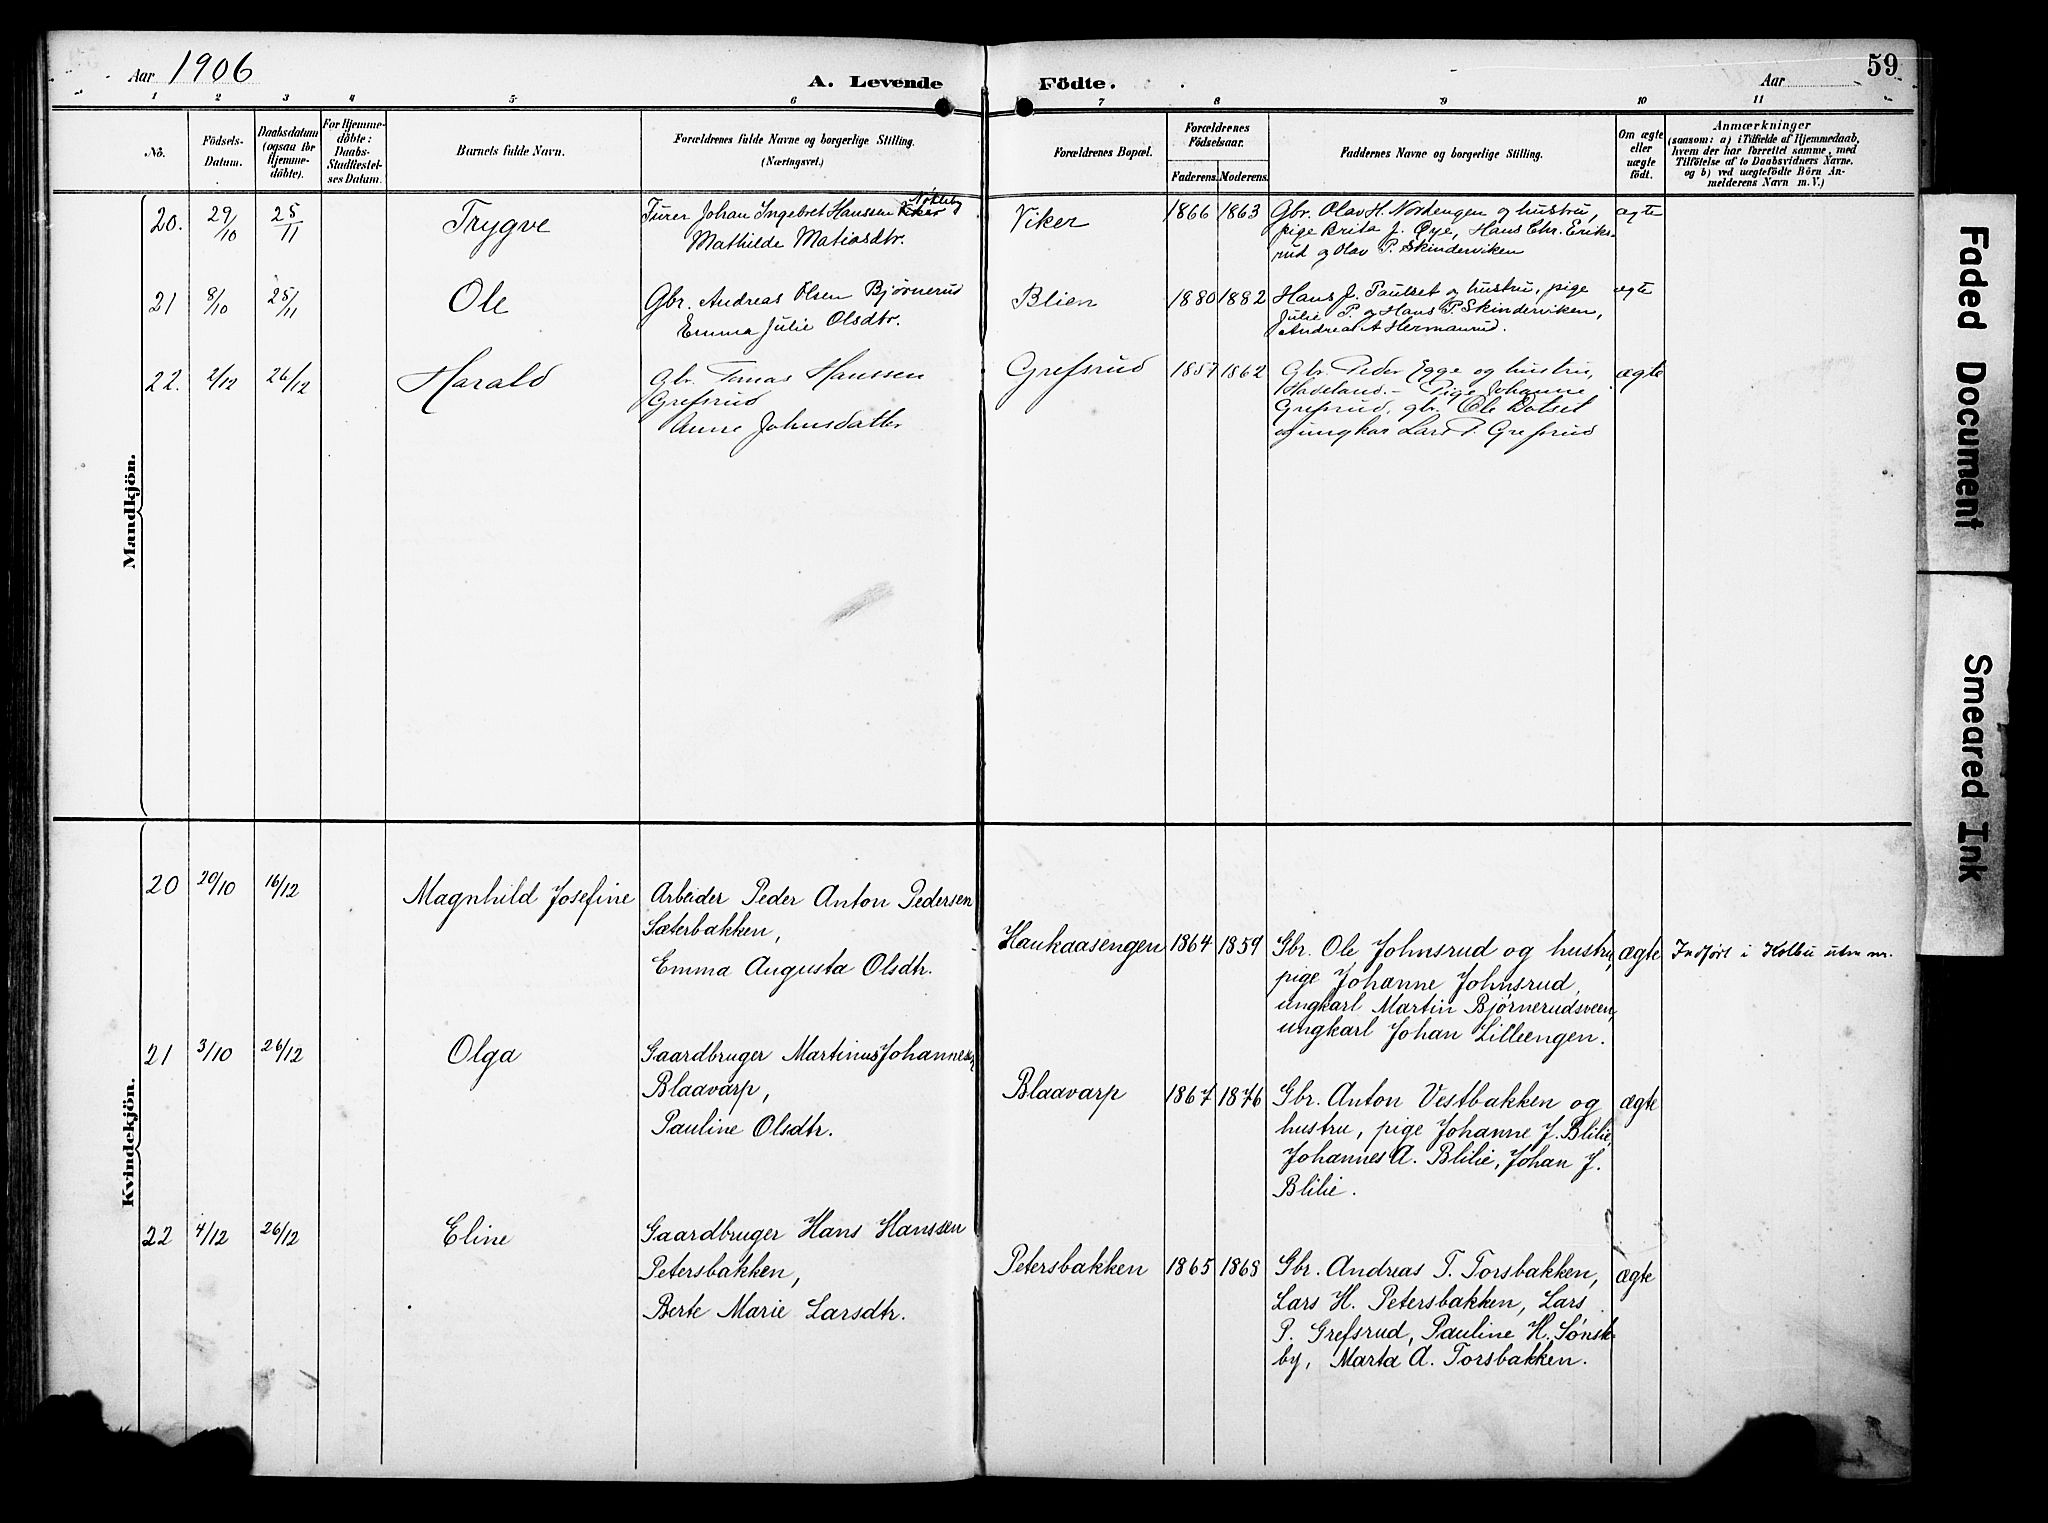 59
Aar 1906
A. Levende Födte.
Aar
1 2 3 4 5 6 7 8 9 10 11
No.
Födsels-
Datum.
Daabsdatum
(ogsaa for
Hjemme-
döbte).
For Hjemme-
döbte:
Daabs-
Stadfæstel-
ses Datum.
Barnets fulde Navn.
Forældrenes fulde Navne og borgerlige Stilling.
(Næringsvei.)
Forældrenes Bopæl.
Forældrenes
Födselsaar.
Faderens. Moderens.
Faddernes Navne og borgerlige Stilling.
Om ægte
eller
uægte
födt.
Anmærkninger
(saasom: a) i Tilfælde af Hjemmedaab,
hvem der har forrettet samme, med
Tilföielse af to Daabsvidners Navne.
og b) ved uægtefödte Börn An-
melderens Navn m. V.)
Mandkjön.
20. 29/10 25/11 Trygve
Johan Ingebret Hanssen Viker
Mathilde Matiasdtr.
Viker 1866 1863
Gbr. Olav H. Nordengen og hustru,
pige Brita J. Øye, Hans Chr. Eriks-
rud og Olav P. Skinderviken
ægte
21 8/10 25/11 Ole
Gbr. Andreas Olsen Bjørnerud
Emma Julie Olsdtr.
Blien 1880 1882
Hans J. Paulset og hustru, pige
Julie P. og Hans P. Skinderviken,
Andreas A Hermanrud.
ægte
22. 2/12 26/12 Harald
Gbr. Tomas Hanssen
Grefsrud
Anne Johnsdatter
Grefsrud 1857 1862
Gbr. Peder Egge og hustru,
Hadeland. - Pige Johanne
Grefsrud, gbr. Ole
og ungkar Lars P. Grefsrud
ægte
Kvindekjön.
20 20/10 16/12 Magnhild Josefine
Arbeider Peder Anton Pedersen
Sæterbakken,
Emma Augusta Olsdtr.
Haukaasengen 1864 1859
Gbr. Ole Johnsrud og hustru,
pige Johanne Johnsrud,
ungkarl Martin Bjørnerudsveen,
ungkarl Johan Lilleengen.
ægte
Indført i Kolbu uten nr.
21 3/10 26/12 Olga
Gaardbruger Martinus Johannesen
Blaavarp,
Pauline Olsdtr.
Blaavarp 1867 1876
Gbr. Anton Vestbakken og
hustru, pige Johanne J. Blilie,
Johannes A. Blilie, Johan J.
Blilie.
ægte
22 4/12 26/12 Eline
Gaardbruger Hans Hanssen
Petersbakken,
Berte Marie Larsdtr.
Petersbakken 1865 1868
Gbr. Andreas T. Torsbakken,
Lars H. Petersbakken, Lars
P. Grefsrud, Pauline H. Sønste-
by, Marta A. Torsbakken.
ægte
Faded Document
Smeared Ink